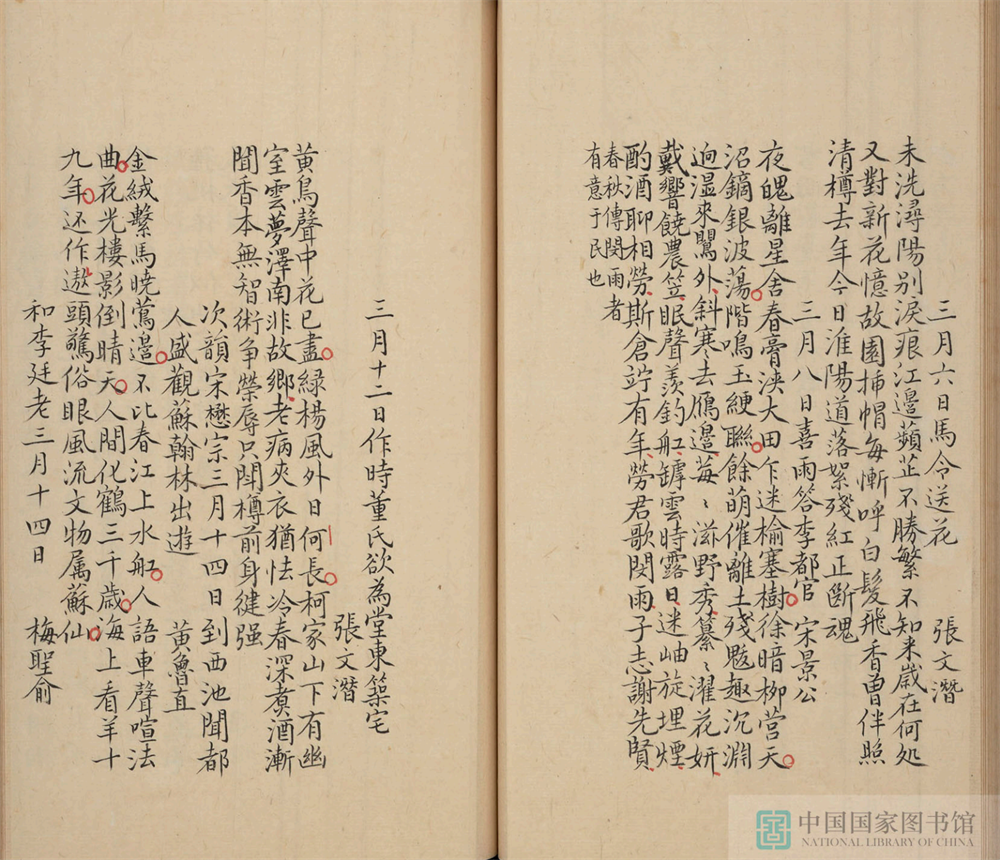 三月六日馬令送花 張文潛
未洗潯陽别淚痕江邊蘋芷不勝繁不知来歳在何処
又對新花憶故園揷帽每慚呼白髮飛香曽伴照
清樽去年今日淮陽道落絮殘紅正斷魂
三月八日喜雨答李都官 宋景公
夜魄離星舍春膏浹大田乍迷榆塞樹徐暗柳営天
沼鏑銀波蕩階鳴玉綆聯餘萌催離土殘魃趣沉淵
逈湿來鷖外斜寒去鴈邊莓〻滋野秀纂〻濯花妍
戴響饒農笠眠聲羨釣舩罅雲時露日迷岫旋埋煙
酌酒聊相勞斯倉竚有年勞君歌閔雨子志謝先賢
春秋傳閔雨者
有意于民也
三月十二日作時董氏欲為堂東築宅
張文潛
黄鳥聲中花已盡緑楊風外日何長柯家山下有幽
室雲夢澤南非故鄉老病夾衣猶怯冷春深煮酒漸
聞香本無智術争榮辱只聞樽前身徤强
次韻宋懋宗三月十四日到西池聞都
人盛觀蘇翰林出遊 黄魯直
金絨繫馬曉鶯邊不比春江上水舩人語車聲喧法
曲花光樓影倒晴天人間化鶴三千歳海上看羊十
九年还作遨頭驚俗眼風流文物属蘇仙
和李廷老三月十四日 梅聖俞
中国国家图书馆
NATIONAL LIBRARY OF CHINA